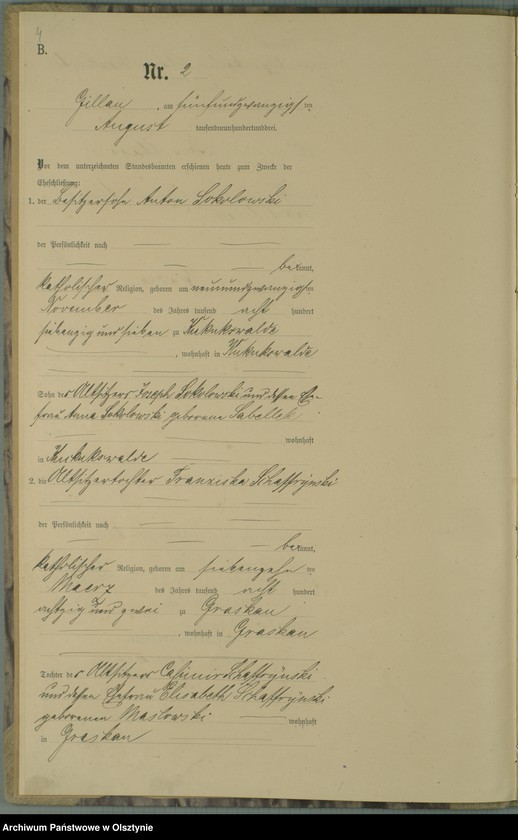 4
B.
Nr. 2
Gillau, am fünfundzwanzigsten
August tausendneunhundertunddrei.
Vor dem unterzeichneten Standesbeamten erschienen heute zum Zwecke der
Eheschließung:
1. der Besitzersohn Anton Sokolowski
der Persönlichkeit nach
bekannt,
katholischer Religion, geboren am neunundzwanzigsten
November des Jahres tausend acht hundert
siebenzig und sieben zu Kukukswalde
, wohnhaft in Kukukswalde
Sohn des Altsitzers Joseph Sokolowski und dessen Ehe-
frau Anna Sokolowski geborene Sabellek
wohnhaft
in Kukukswalde
2. die Altsitzertochter Franziska
der Persönlichkeit nach
bekannt,
katholischer Religion, geboren am siebenzehnten
Maerz des Jahres tausend acht hundert
achtzig und zwei zu Graskau
, wohnhaft in Graskau
Tochter des Altsitzers Casimir
und dessen Ehefrau Elisabeth
geborenen Maslowski wohnhaft
in Graskau
Archiwum Państwowe w Olsztynie